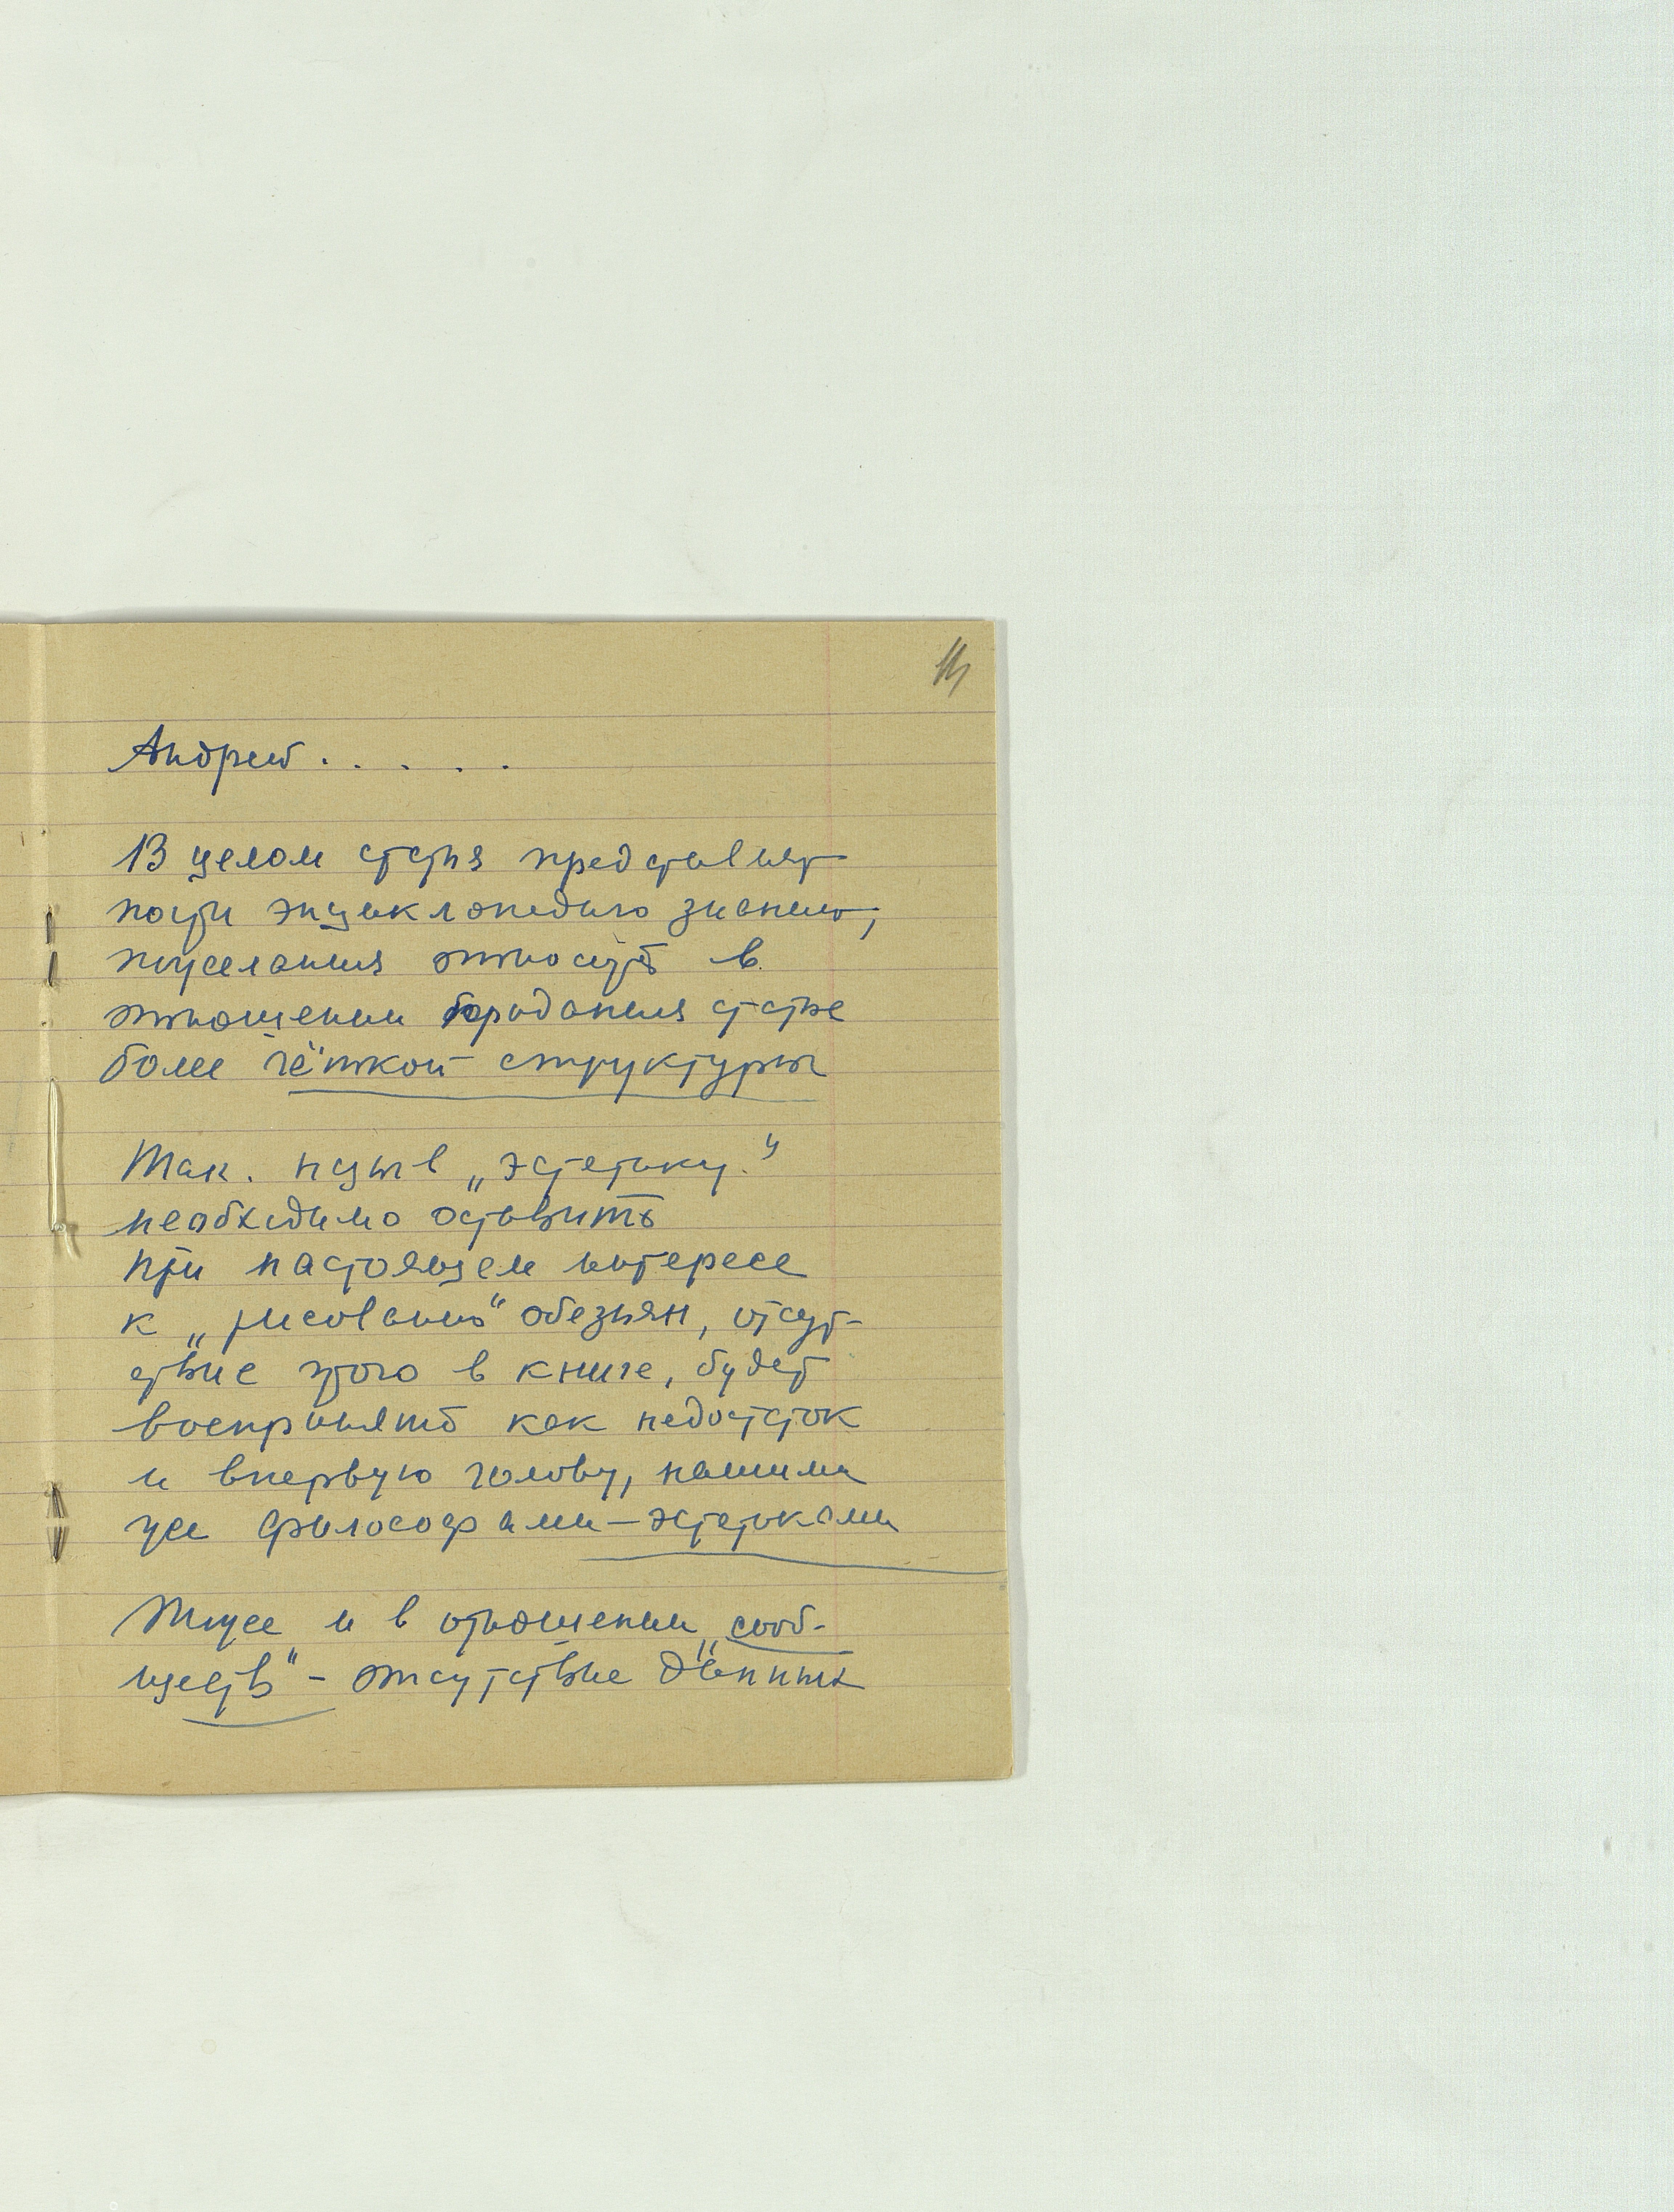 Андрей . . . . .
В целом статья представляет
почти энциклопедию знаний,
пожелания относятся в
отношении придания статье
более чёткой структуры
Так. назыв „эстетику."
необходимо оставить
при настоящем интересе
к „рисованию" обезьян, отсут-
ствие этого в книге, будет
воспринято как недостаток
и впервую голову, нашими
же философами—эстетиками
Тоже и в отношении „сооб-
ществ" - отсутствие данных